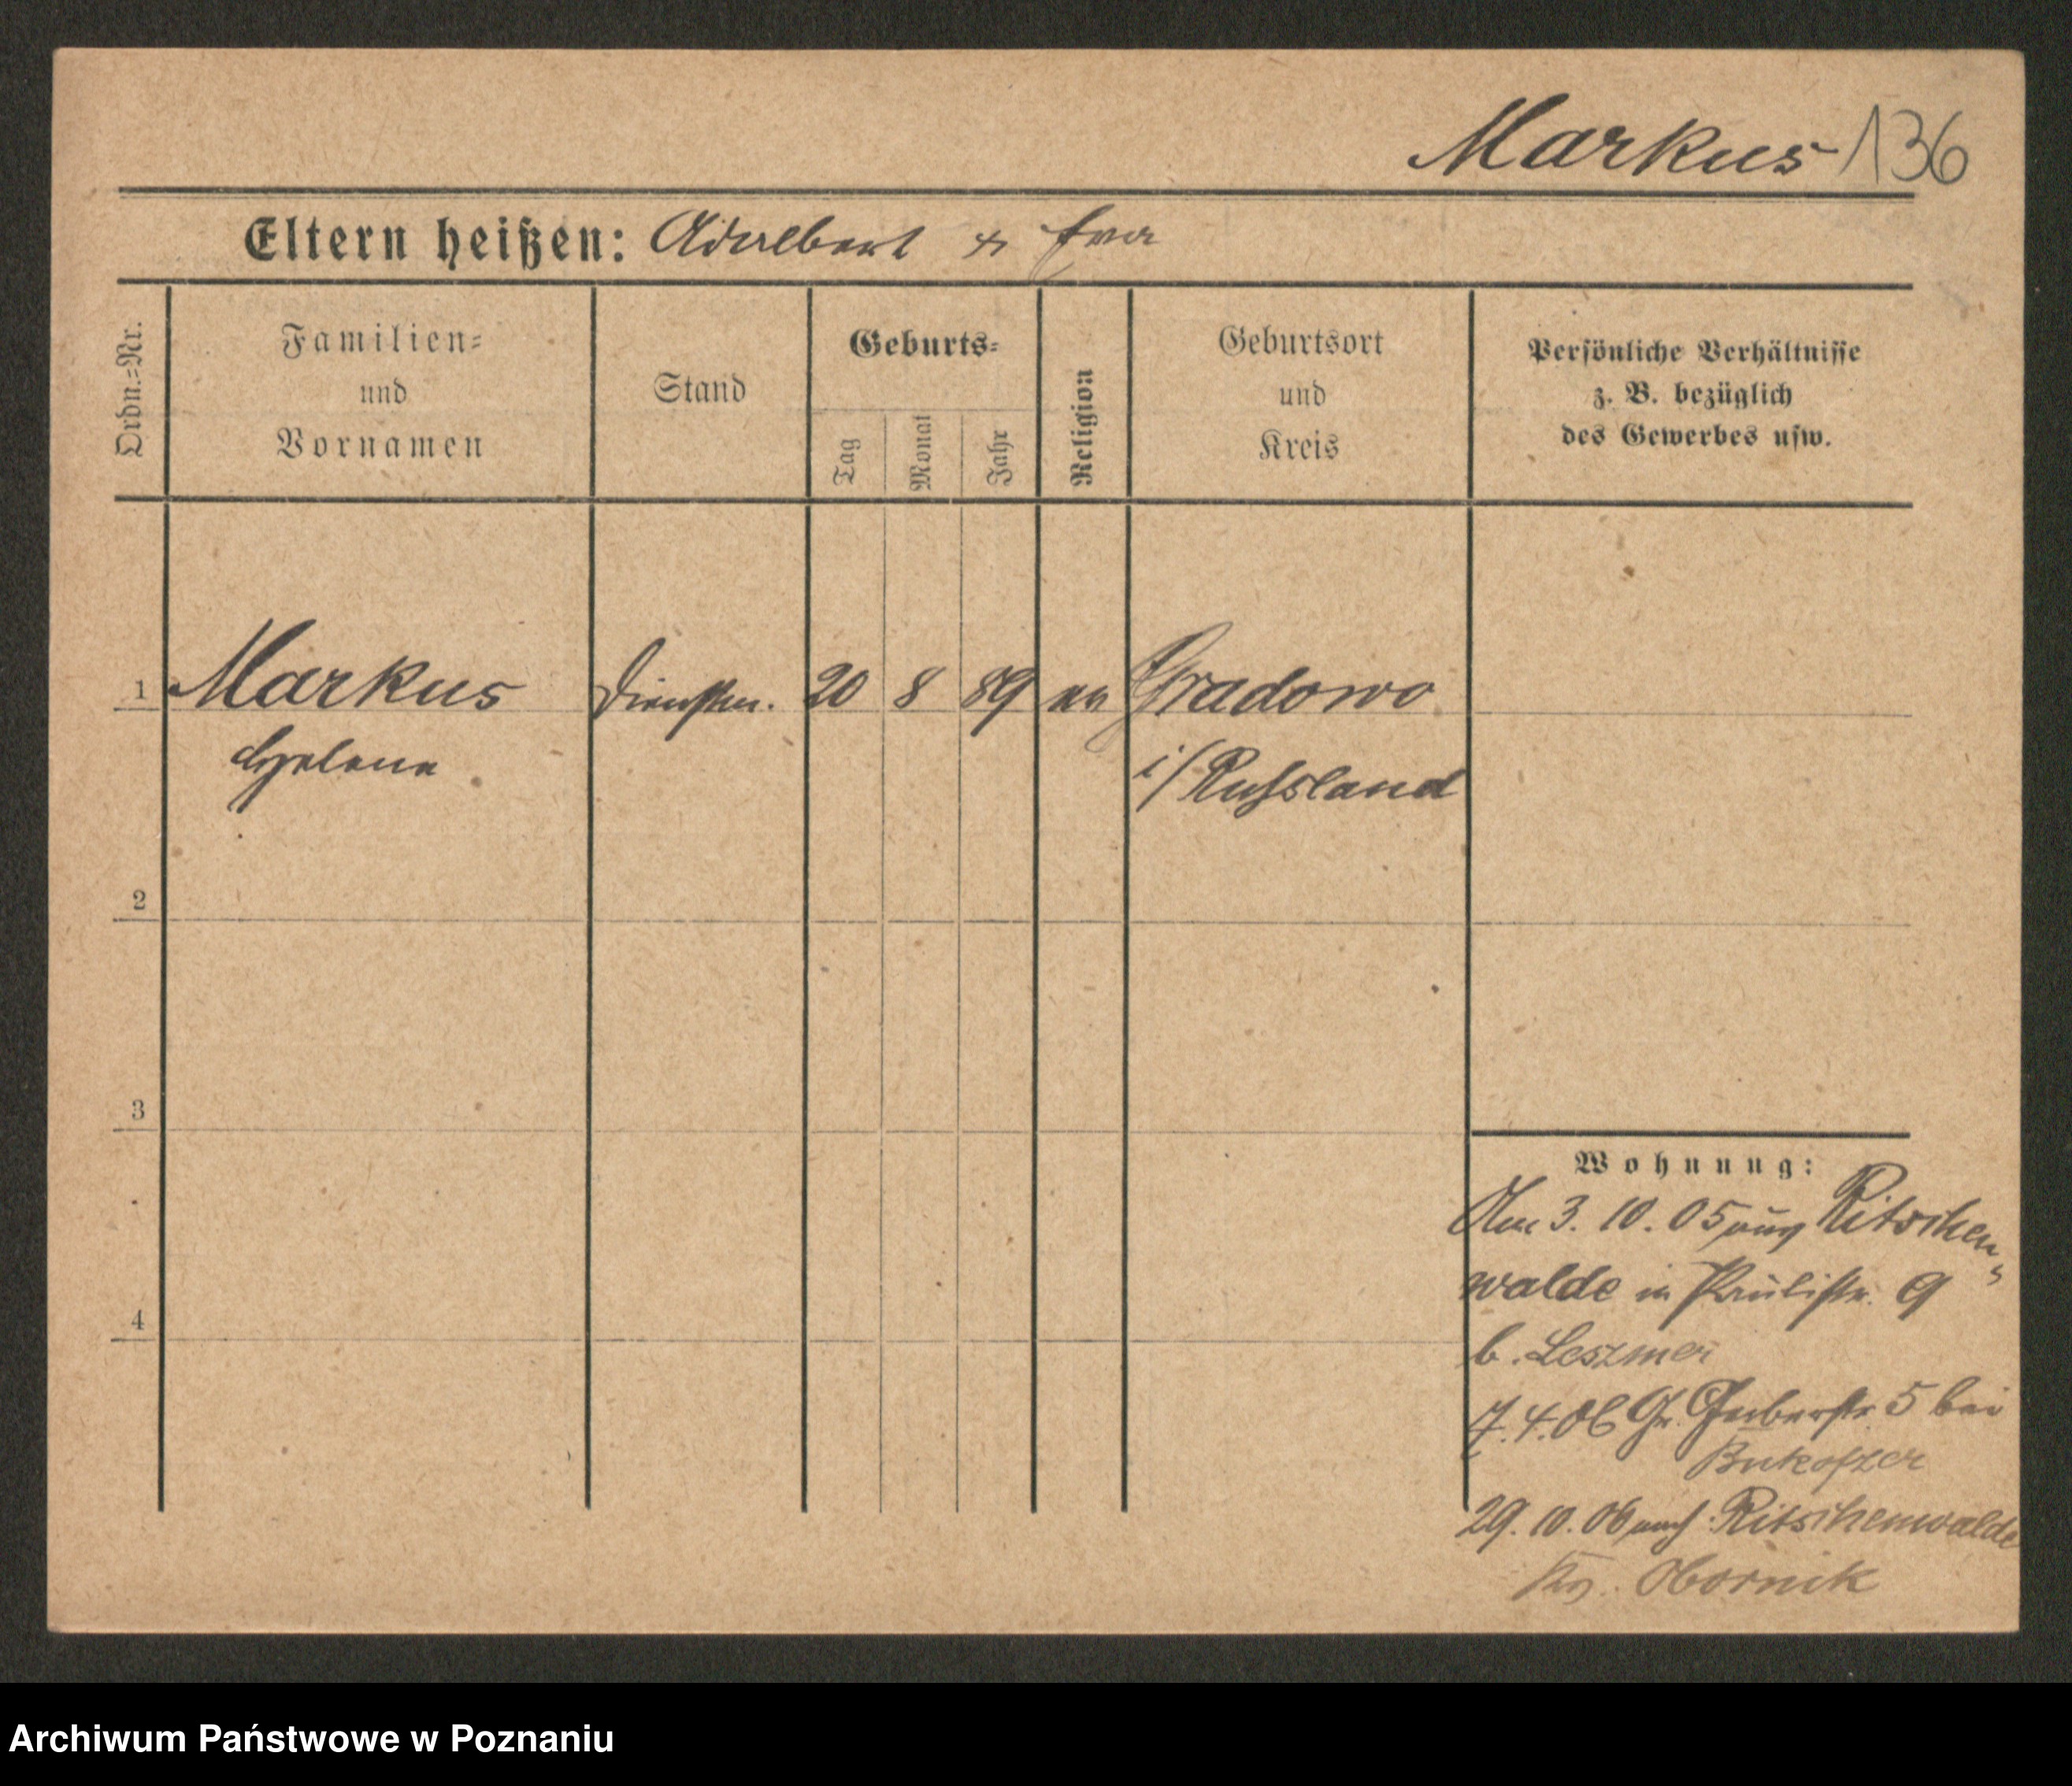 Markus 136
Eltern heißen: Adalbert & Eva
Ordn.=Nr.
Familien=
und
Vornamen
Stand
Geburts=
Tag
Monat
Jahr
Religion
Geburtsort
und
Kreis
Persönliche Verhältnisse
z. B. bezüglich
des Gewerbes usw.
1 Markus Dienstm. 20 8 89 Gradowo
Helene i/Russland
2
3
4
Wohnung:
Am 3. 10. 05 aus Ritschen„
walde in Paulistr. 9
b. Leszmer
7. 4. 06 Gr. Gerberstr 5 bei
Bukofzer
29. 10. 06 nach Ritschenwalde
Krs. Obornik
Archiwum Państwowe w Poznaniu